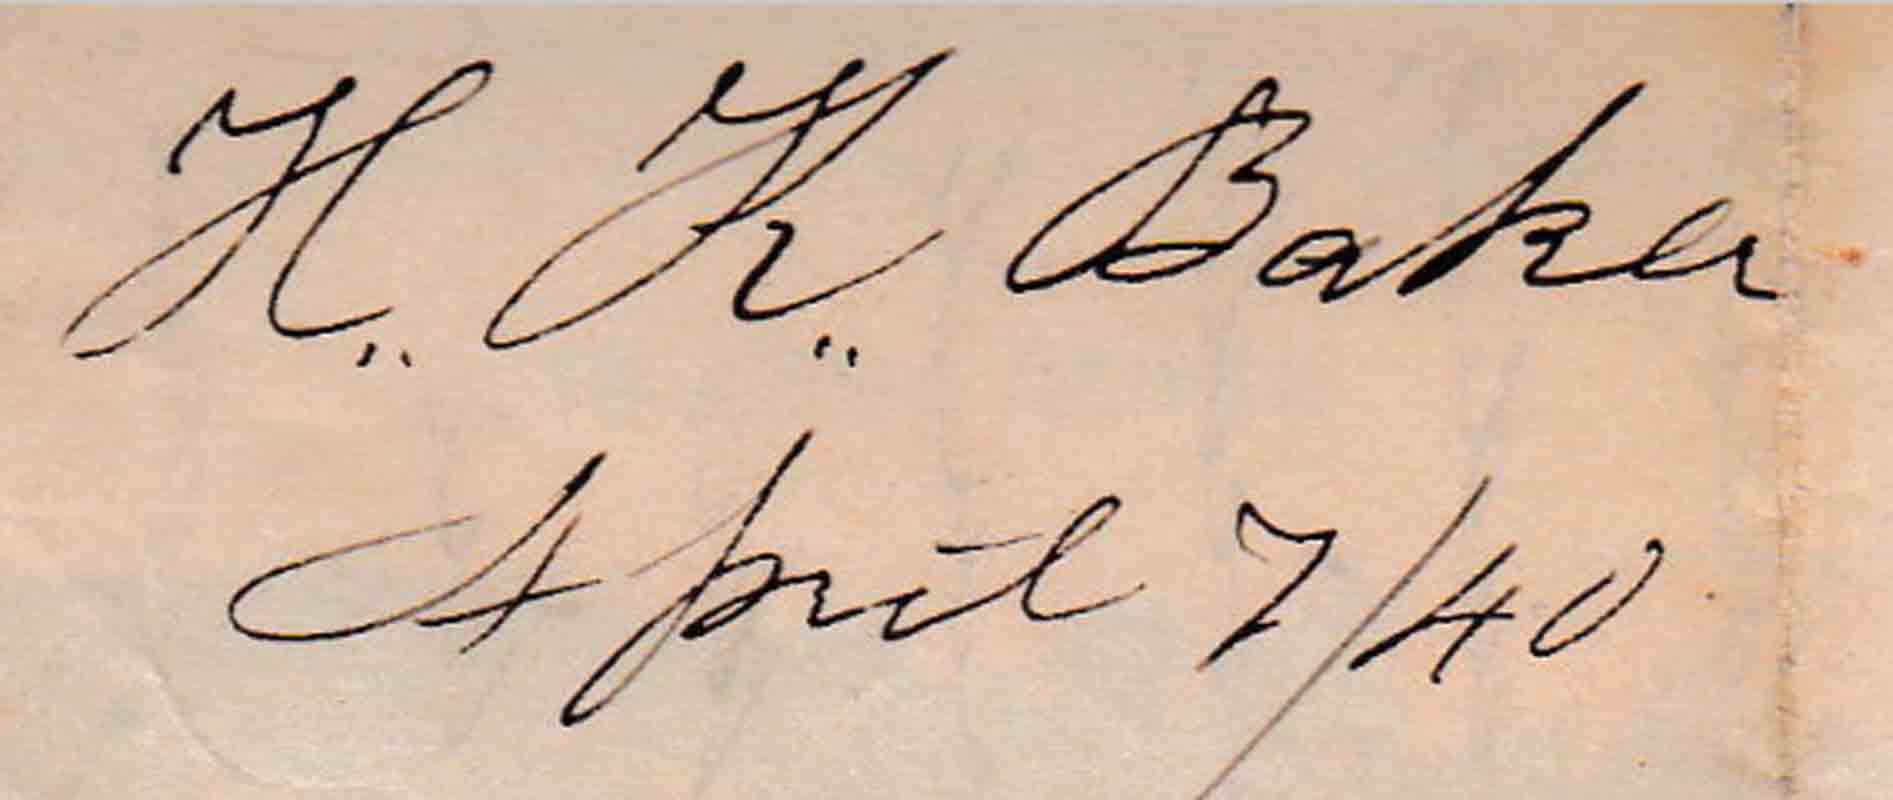 H.. K.. Baker
April 7/40